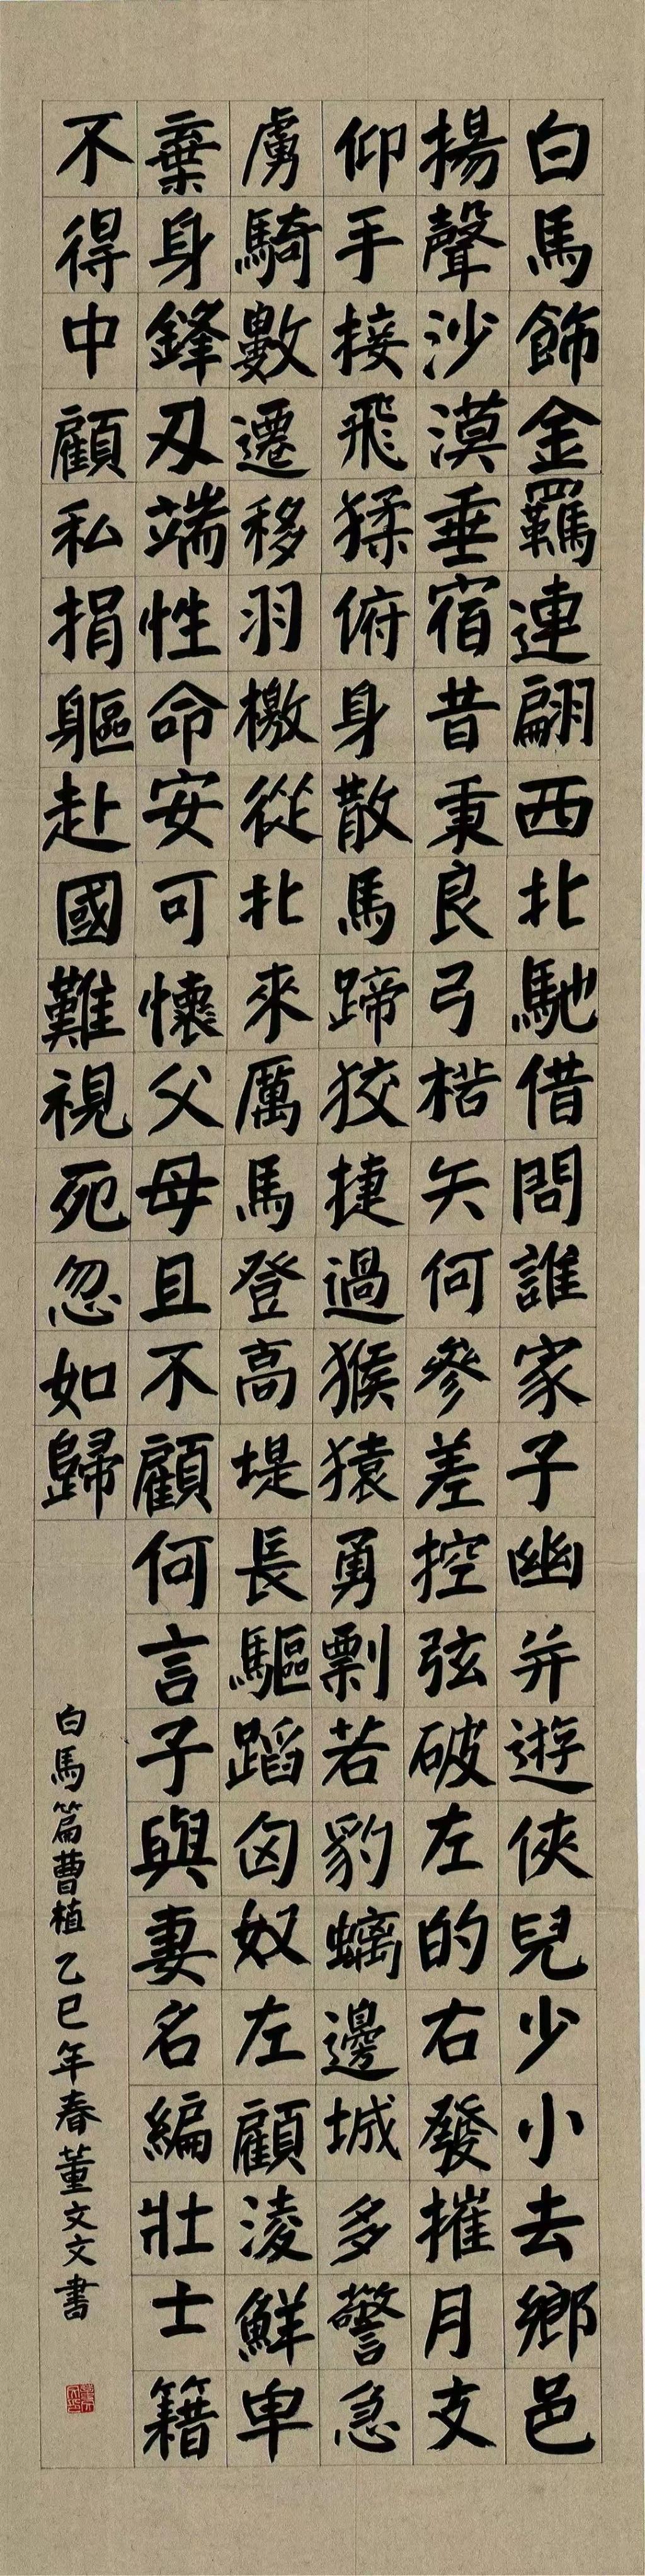 白馬飾金羈連翩西北馳借問誰家子幽并遊俠兒少小去鄉邑
揚聲沙漠垂宿昔秉良弓楛矢何參差控弦破左的右發摧月支
仰手接飛猱俯身散馬蹄狡捷過猴猿勇剽若豹螭邊城多警急
虜騎數遷移羽檄從北來厲馬登高堤長驅蹈匈奴左顧淩鮮卑
棄身鋒刃端性命安可懷父母且不顧何言子與妻名編壯士籍
不得中顧私捐軀赴國難視死忽如歸
白馬篇曹植乙巳年春董文文書